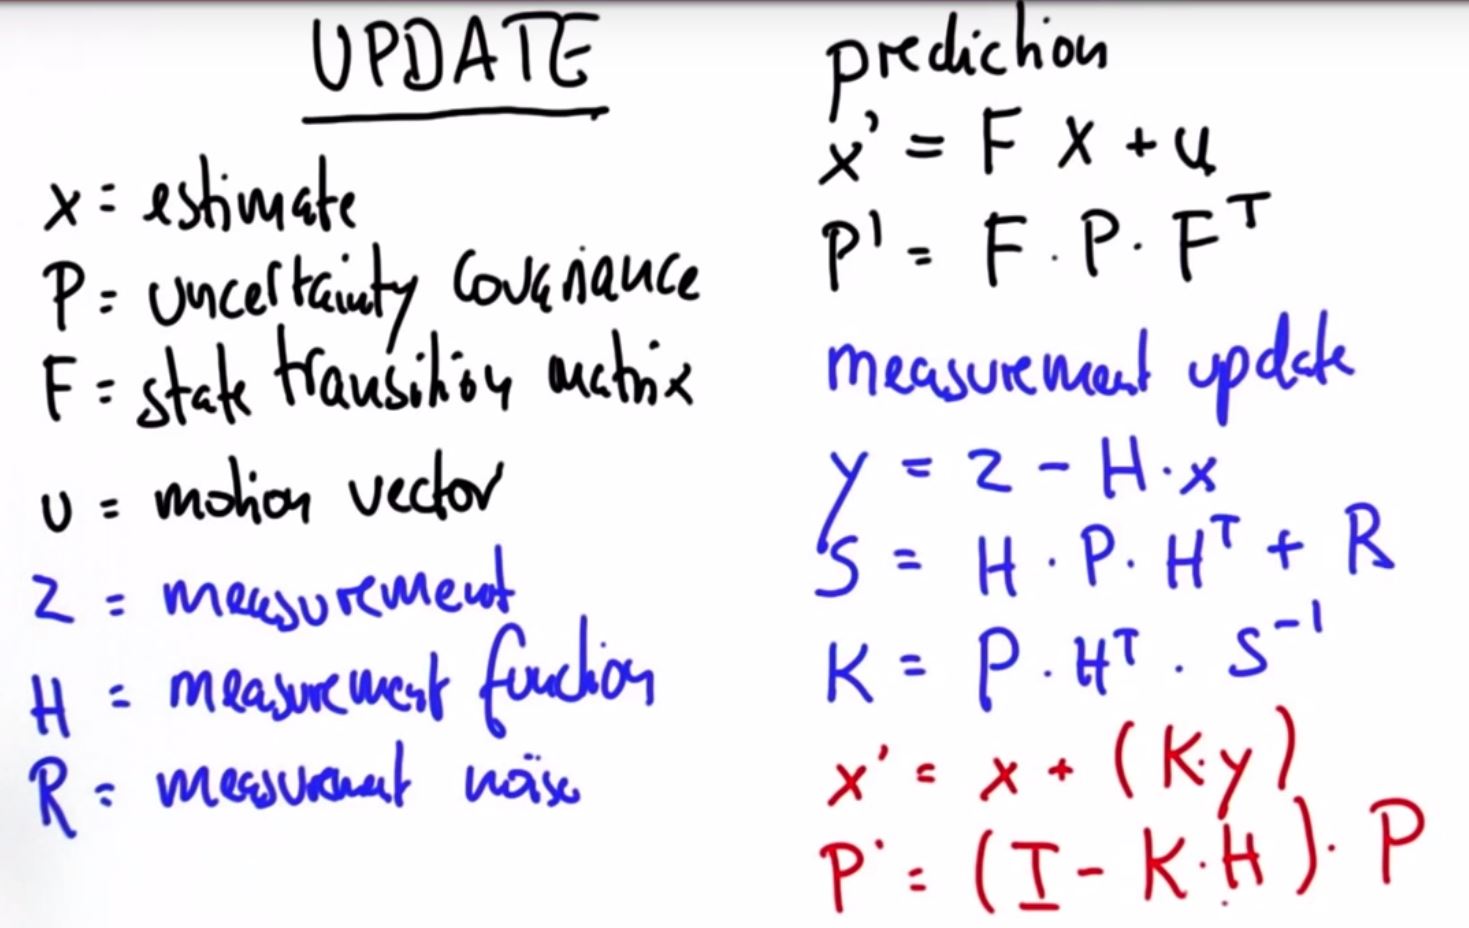 UPDATE
x = estimate
P = uncertainty covariance
F = state transition matrix
u = motion vector
z = measurement
H = measurement function
R = measurement noise
prediction
x' = F x + u
P' = F · P · Fᵀ
measurement update
y = z - H · x
S = H · P · Hᵀ + R
K = P · Hᵀ · S⁻¹
x' = x + (K · y)
P' = (I - K · H) · P